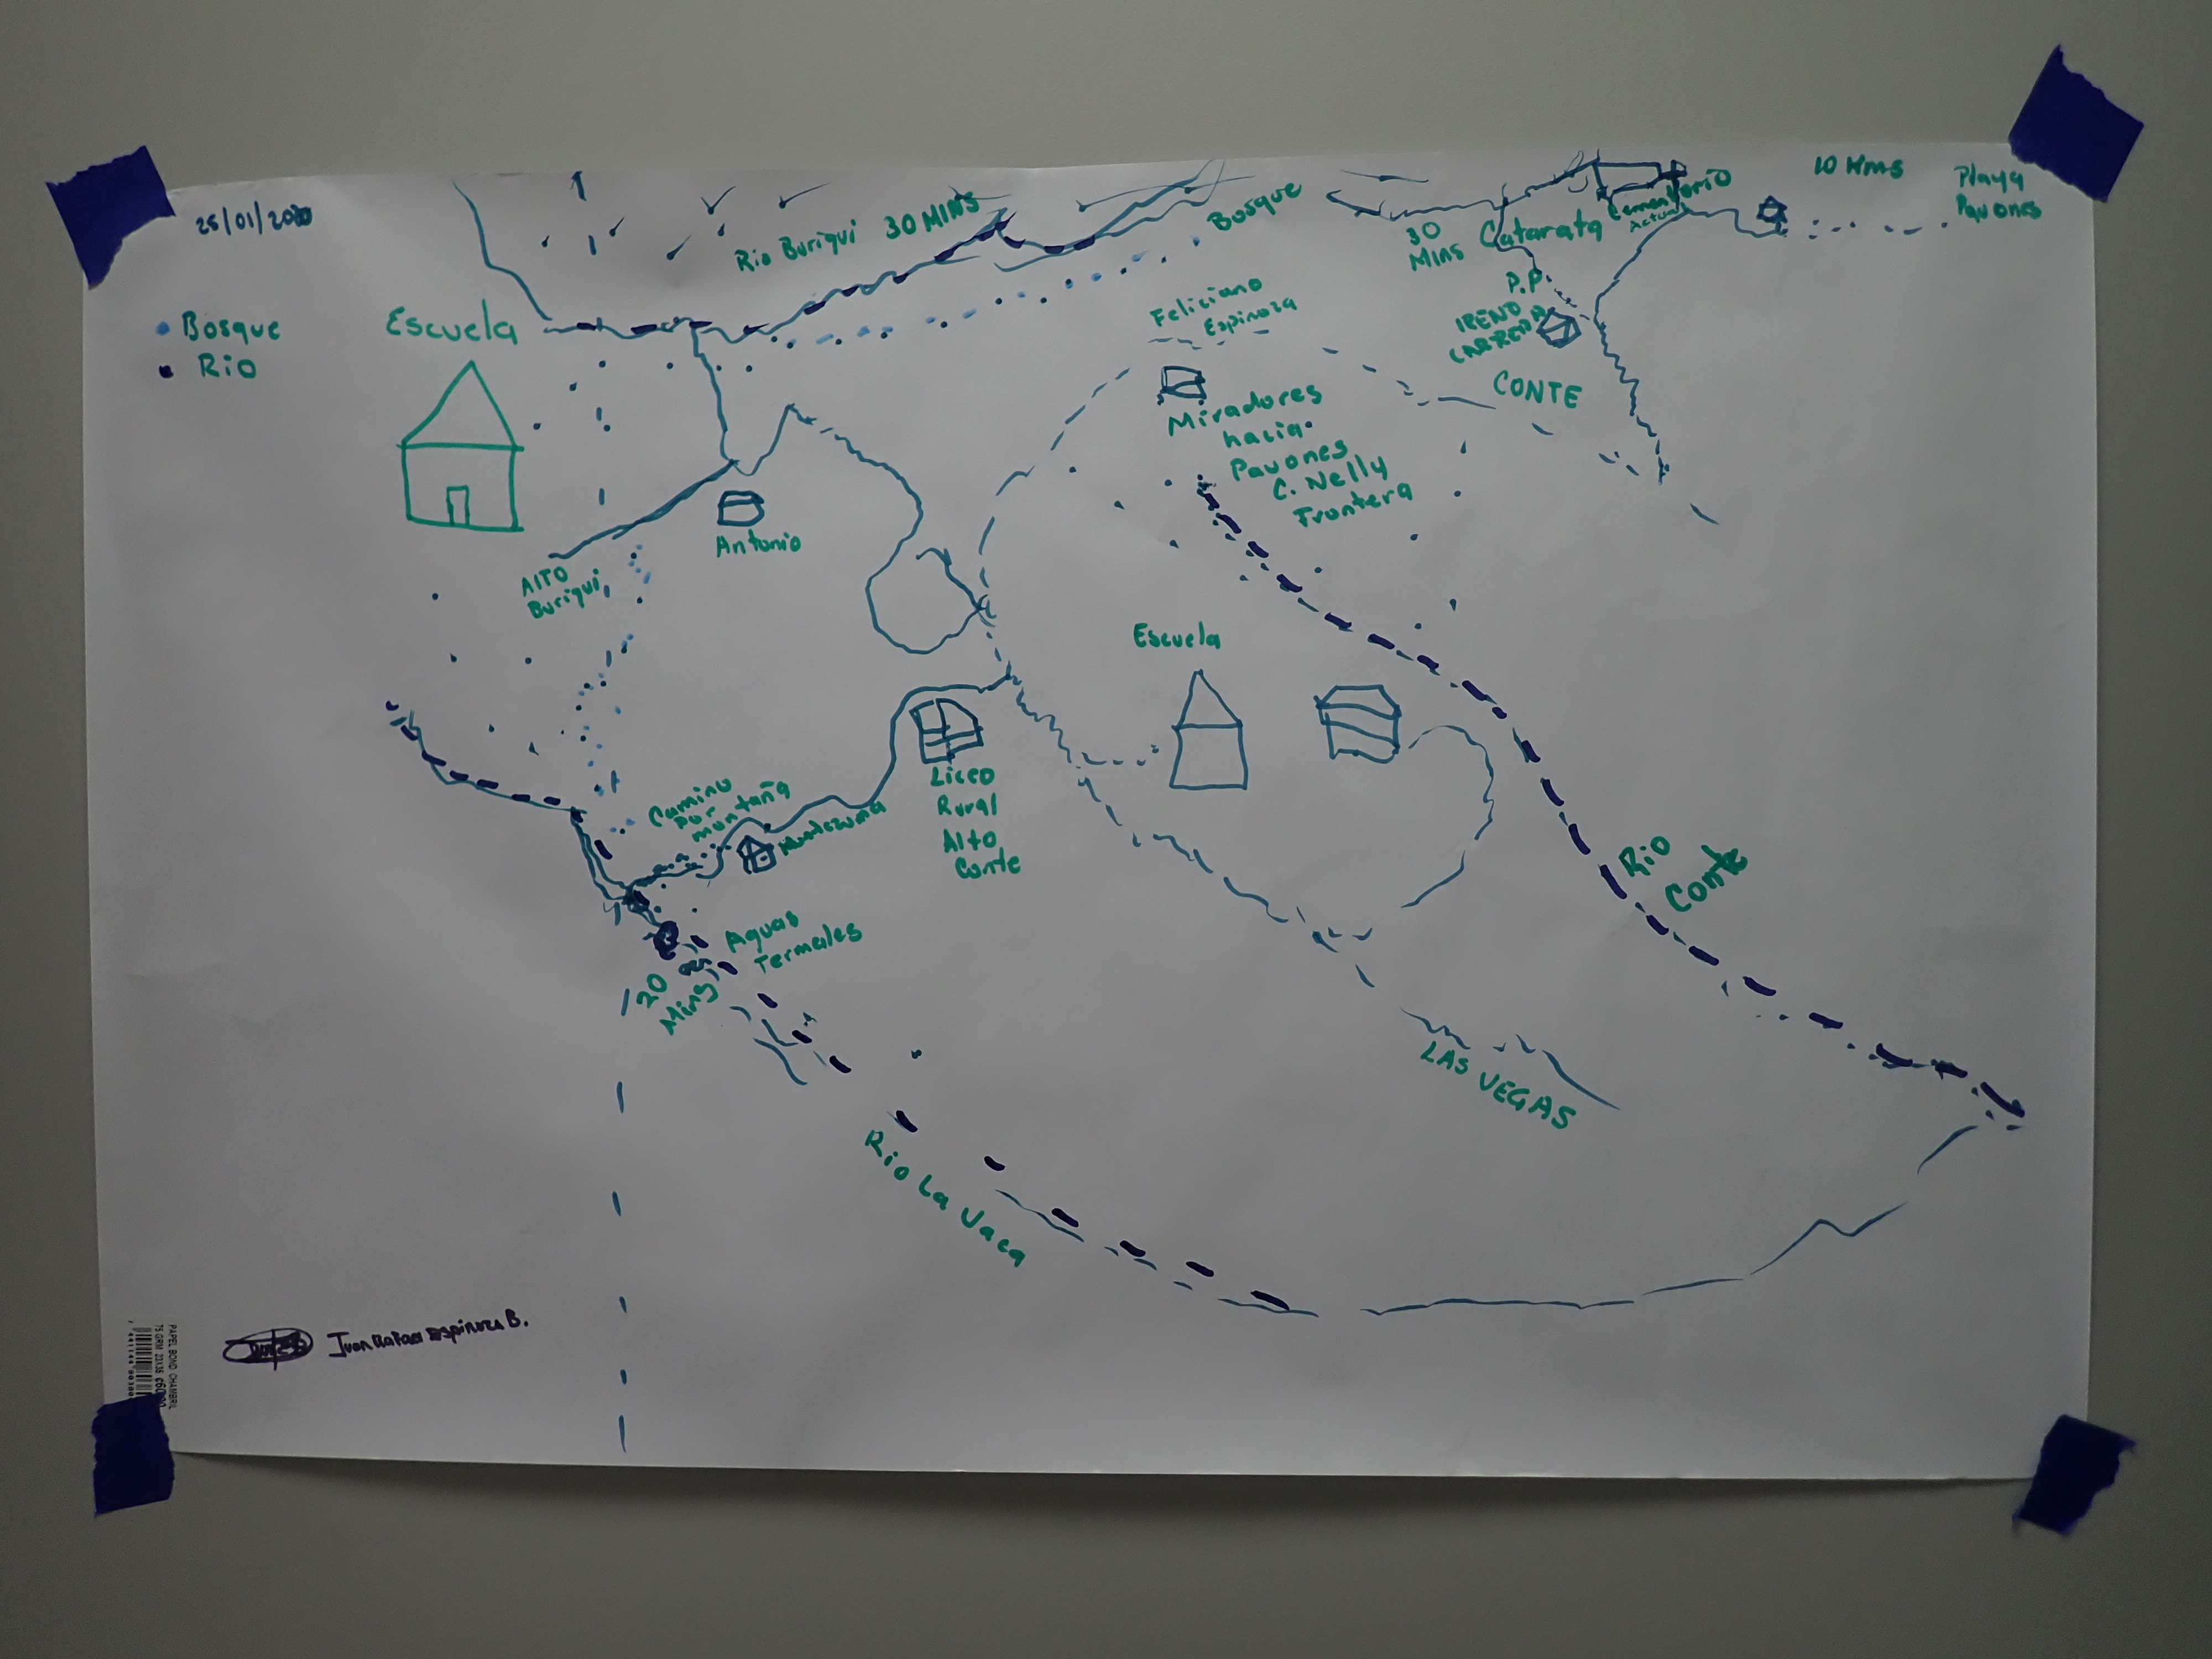 Bosque
Rio
Escuela
Rio Buriqui 30 MINS
Bosque
30
Mins
Catarata
Actual
10 Kms
Playa
Pavones
P.P
IRENO
CARRERA
CONTE
Feliciano
Espinoza
Miradores
hacia
Pavones
C. Nelly
Frontera
Antonio
Alto
Buriqui
Escuela
Camino
por
montaña
Liceo
Rural
Alto
Conte
Aguas
Termales
20
Mins
Rio
Conte
LAS VEGAS
Rio La Vaca
Juan Rafael Espinoza B.
PAPEL BOND CHAMBRIL